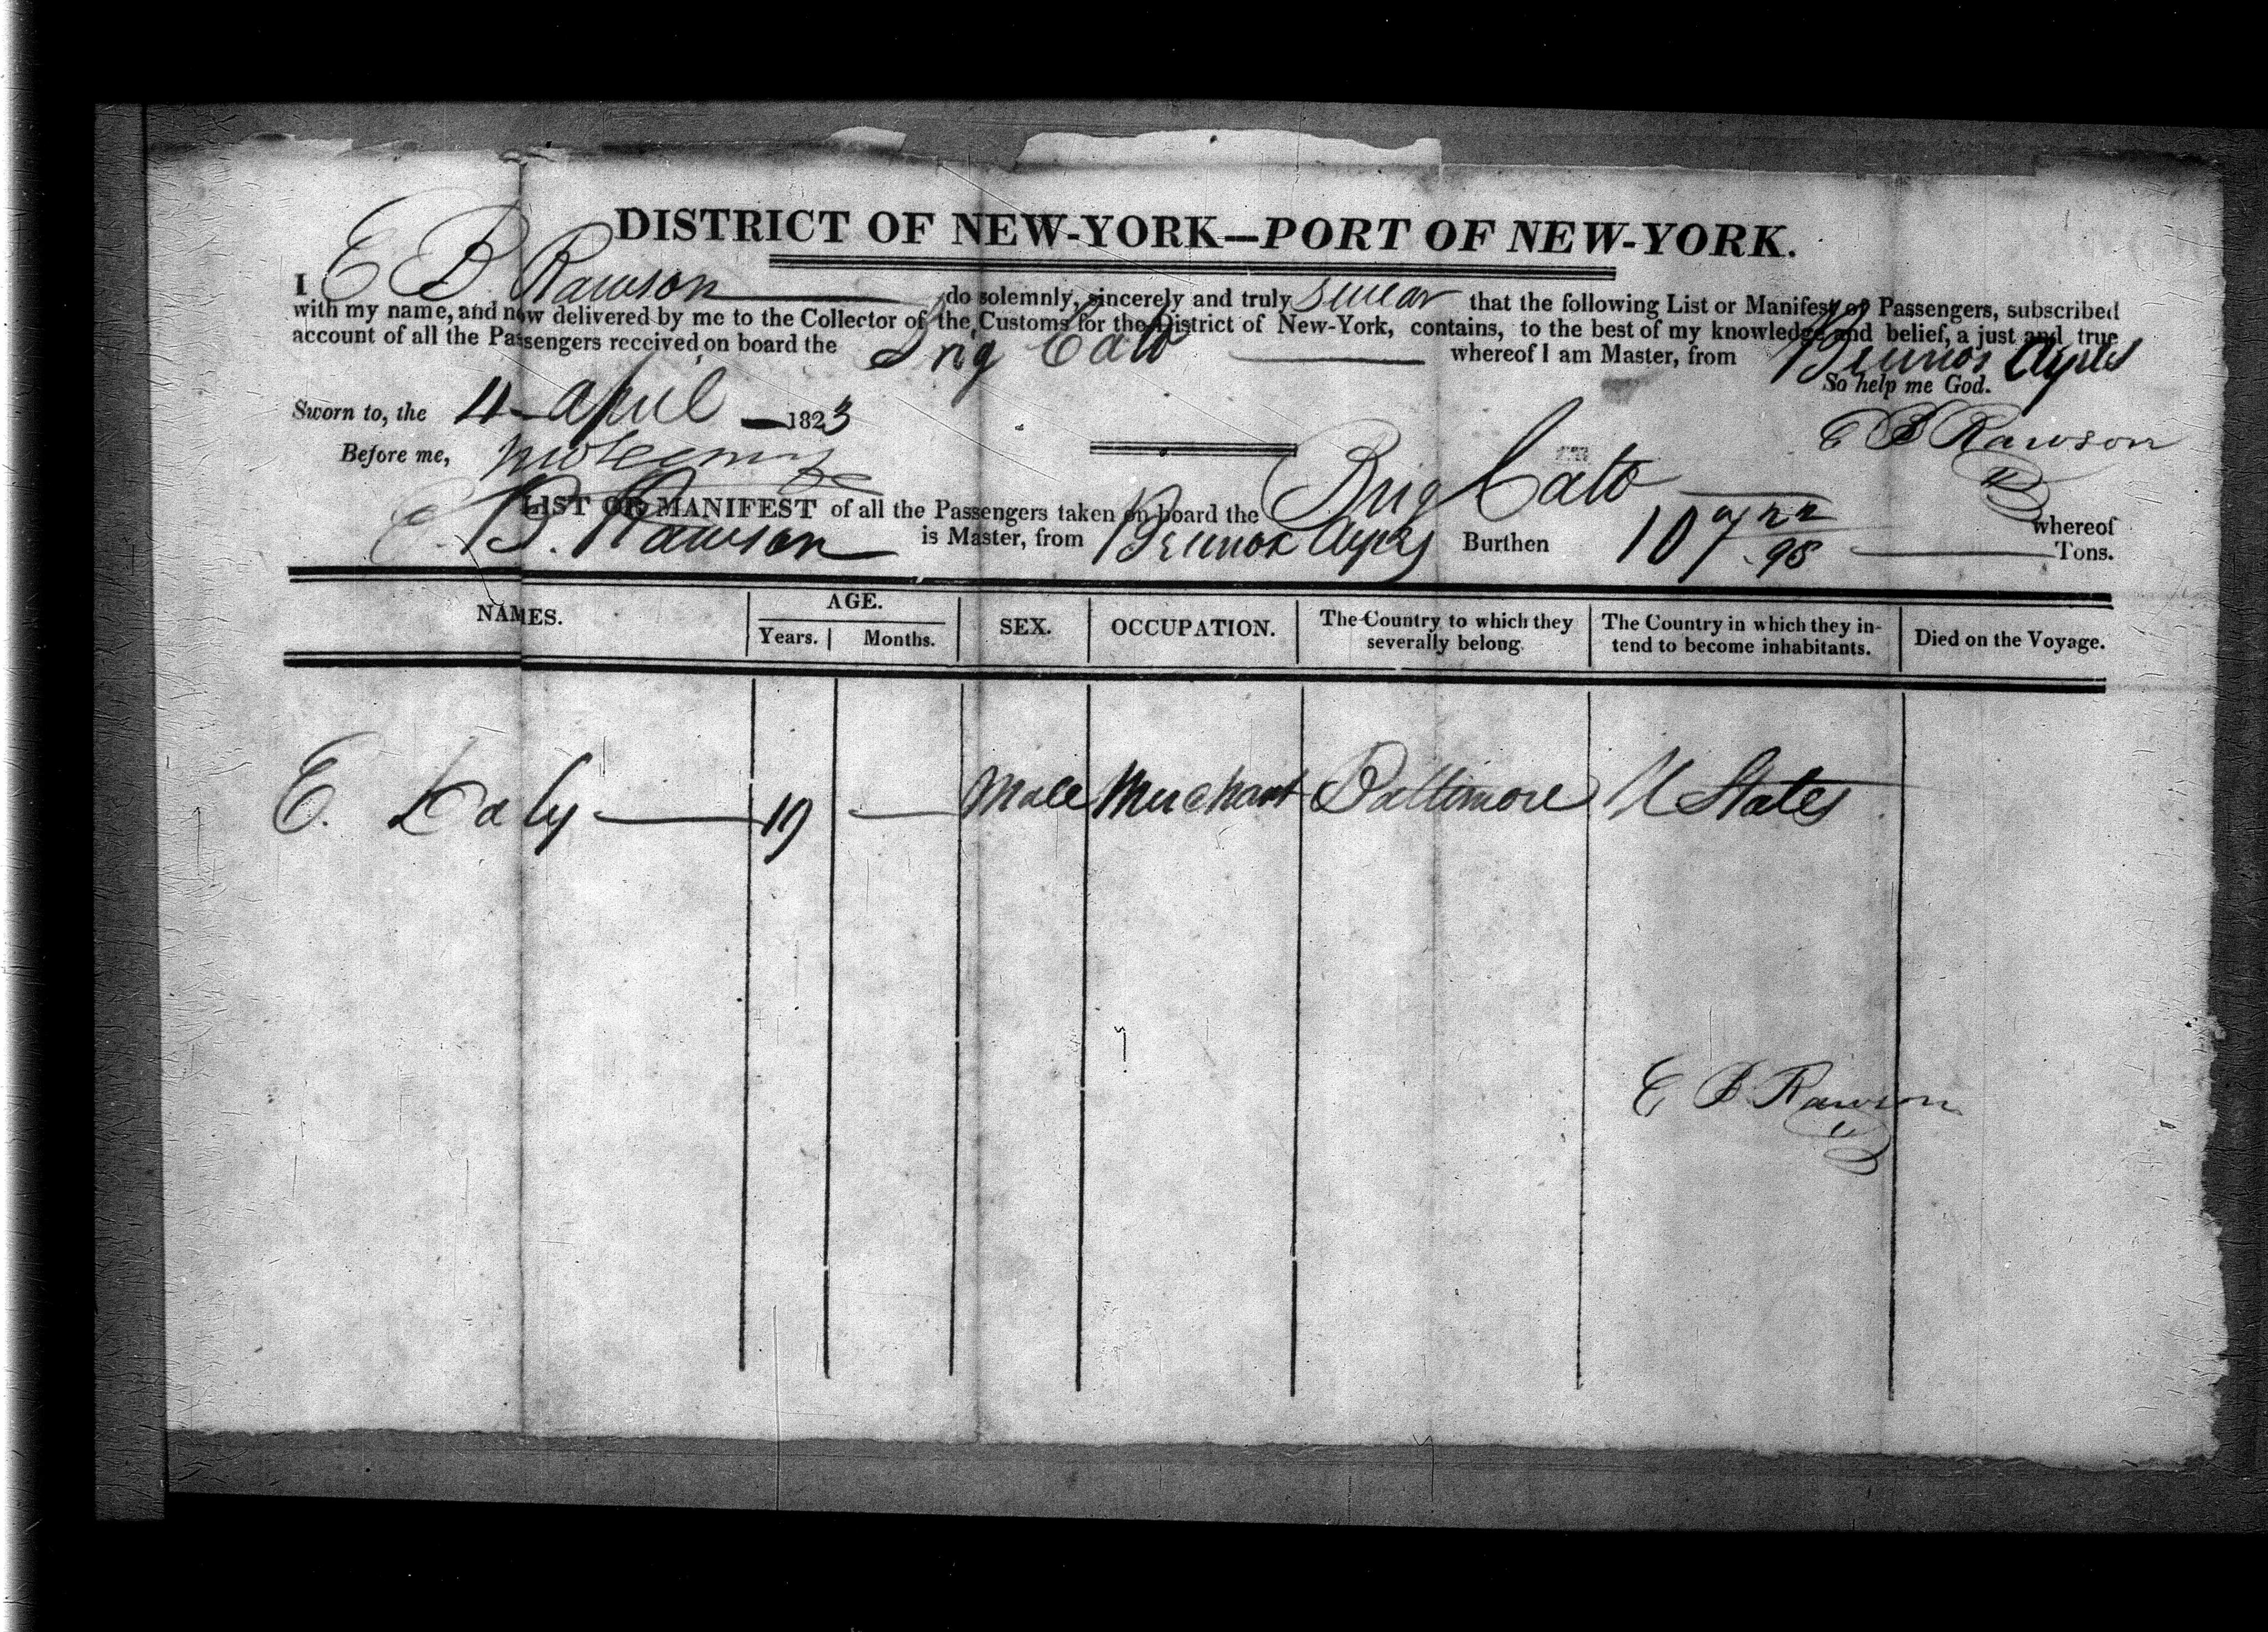 DISTRICT OF NEW-YORK—PORT OF NEW-YORK.
I E B Rawson do solemnly, sincerely and truly swear that the following List or Manifest of Passengers, subscribed
with my name, and now delivered by me to the Collector of the Customs for the District of New-York, contains, to the best of my knowledge and belief, a just and true
account of all the Passengers received on board the Brig Cato whereof I am Master, from Buenos Ayres
So help me God.
Sworn to, the 4 april 1823
E B Rawson
Before me,
LIST OR MANIFEST of all the Passengers taken on board the Brig Cato whereof
E. B. Rawson is Master, from Buenos Ayres Burthen 107 22/95 Tons.
NAMES. AGE. Years. Months. SEX. OCCUPATION. The Country to which they severally belong. The Country in which they intend to become inhabitants. Died on the Voyage.
E. Daly — 19 — Male Merchant Baltimore U States
E B Rawson